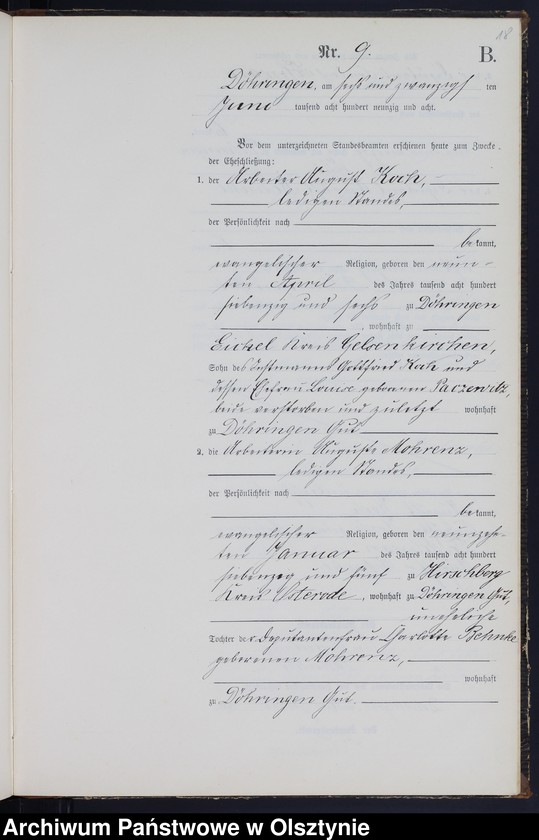 18
Nr. 9.
B.
Döhringen, am sechs und zwanzigsten
Juni tausend acht hundert neunzig und acht.
Vor dem unterzeichneten Standesbeamten erschienen heute zum Zwecke
der Eheschließung:
1. der Arbeiter August Koch,
ledigen Standes,
der Persönlichkeit nach
bekannt,
evangelischer Religion, geboren den neun-
ten April des Jahres tausend acht hundert
siebenzig und sechs zu Döhringen
, wohnhaft zu
Eickel Kreis Gelsenkirchen,
Sohn des Instmanns Gottfried Koch und
dessen Ehefrau Louise geborenen
beide verstorben und zuletzt wohnhaft
zu Döhringen Gut
2. die Arbeiterin Auguste Mohrenz,
ledigen Standes,
der Persönlichkeit nach
bekannt,
evangelischer Religion, geboren den neunzehn-
ten Januar des Jahres tausend acht hundert
siebenzig und fünf zu Hirschberg
Kreis Osterode, wohnhaft zu Döhringen Gut,
uneheliche
Tochter der Deputantenfrau Charlotte Behnke
geborenen Mohrenz,
wohnhaft
zu Döhringen Gut.
Archiwum Państwowe w Olsztynie